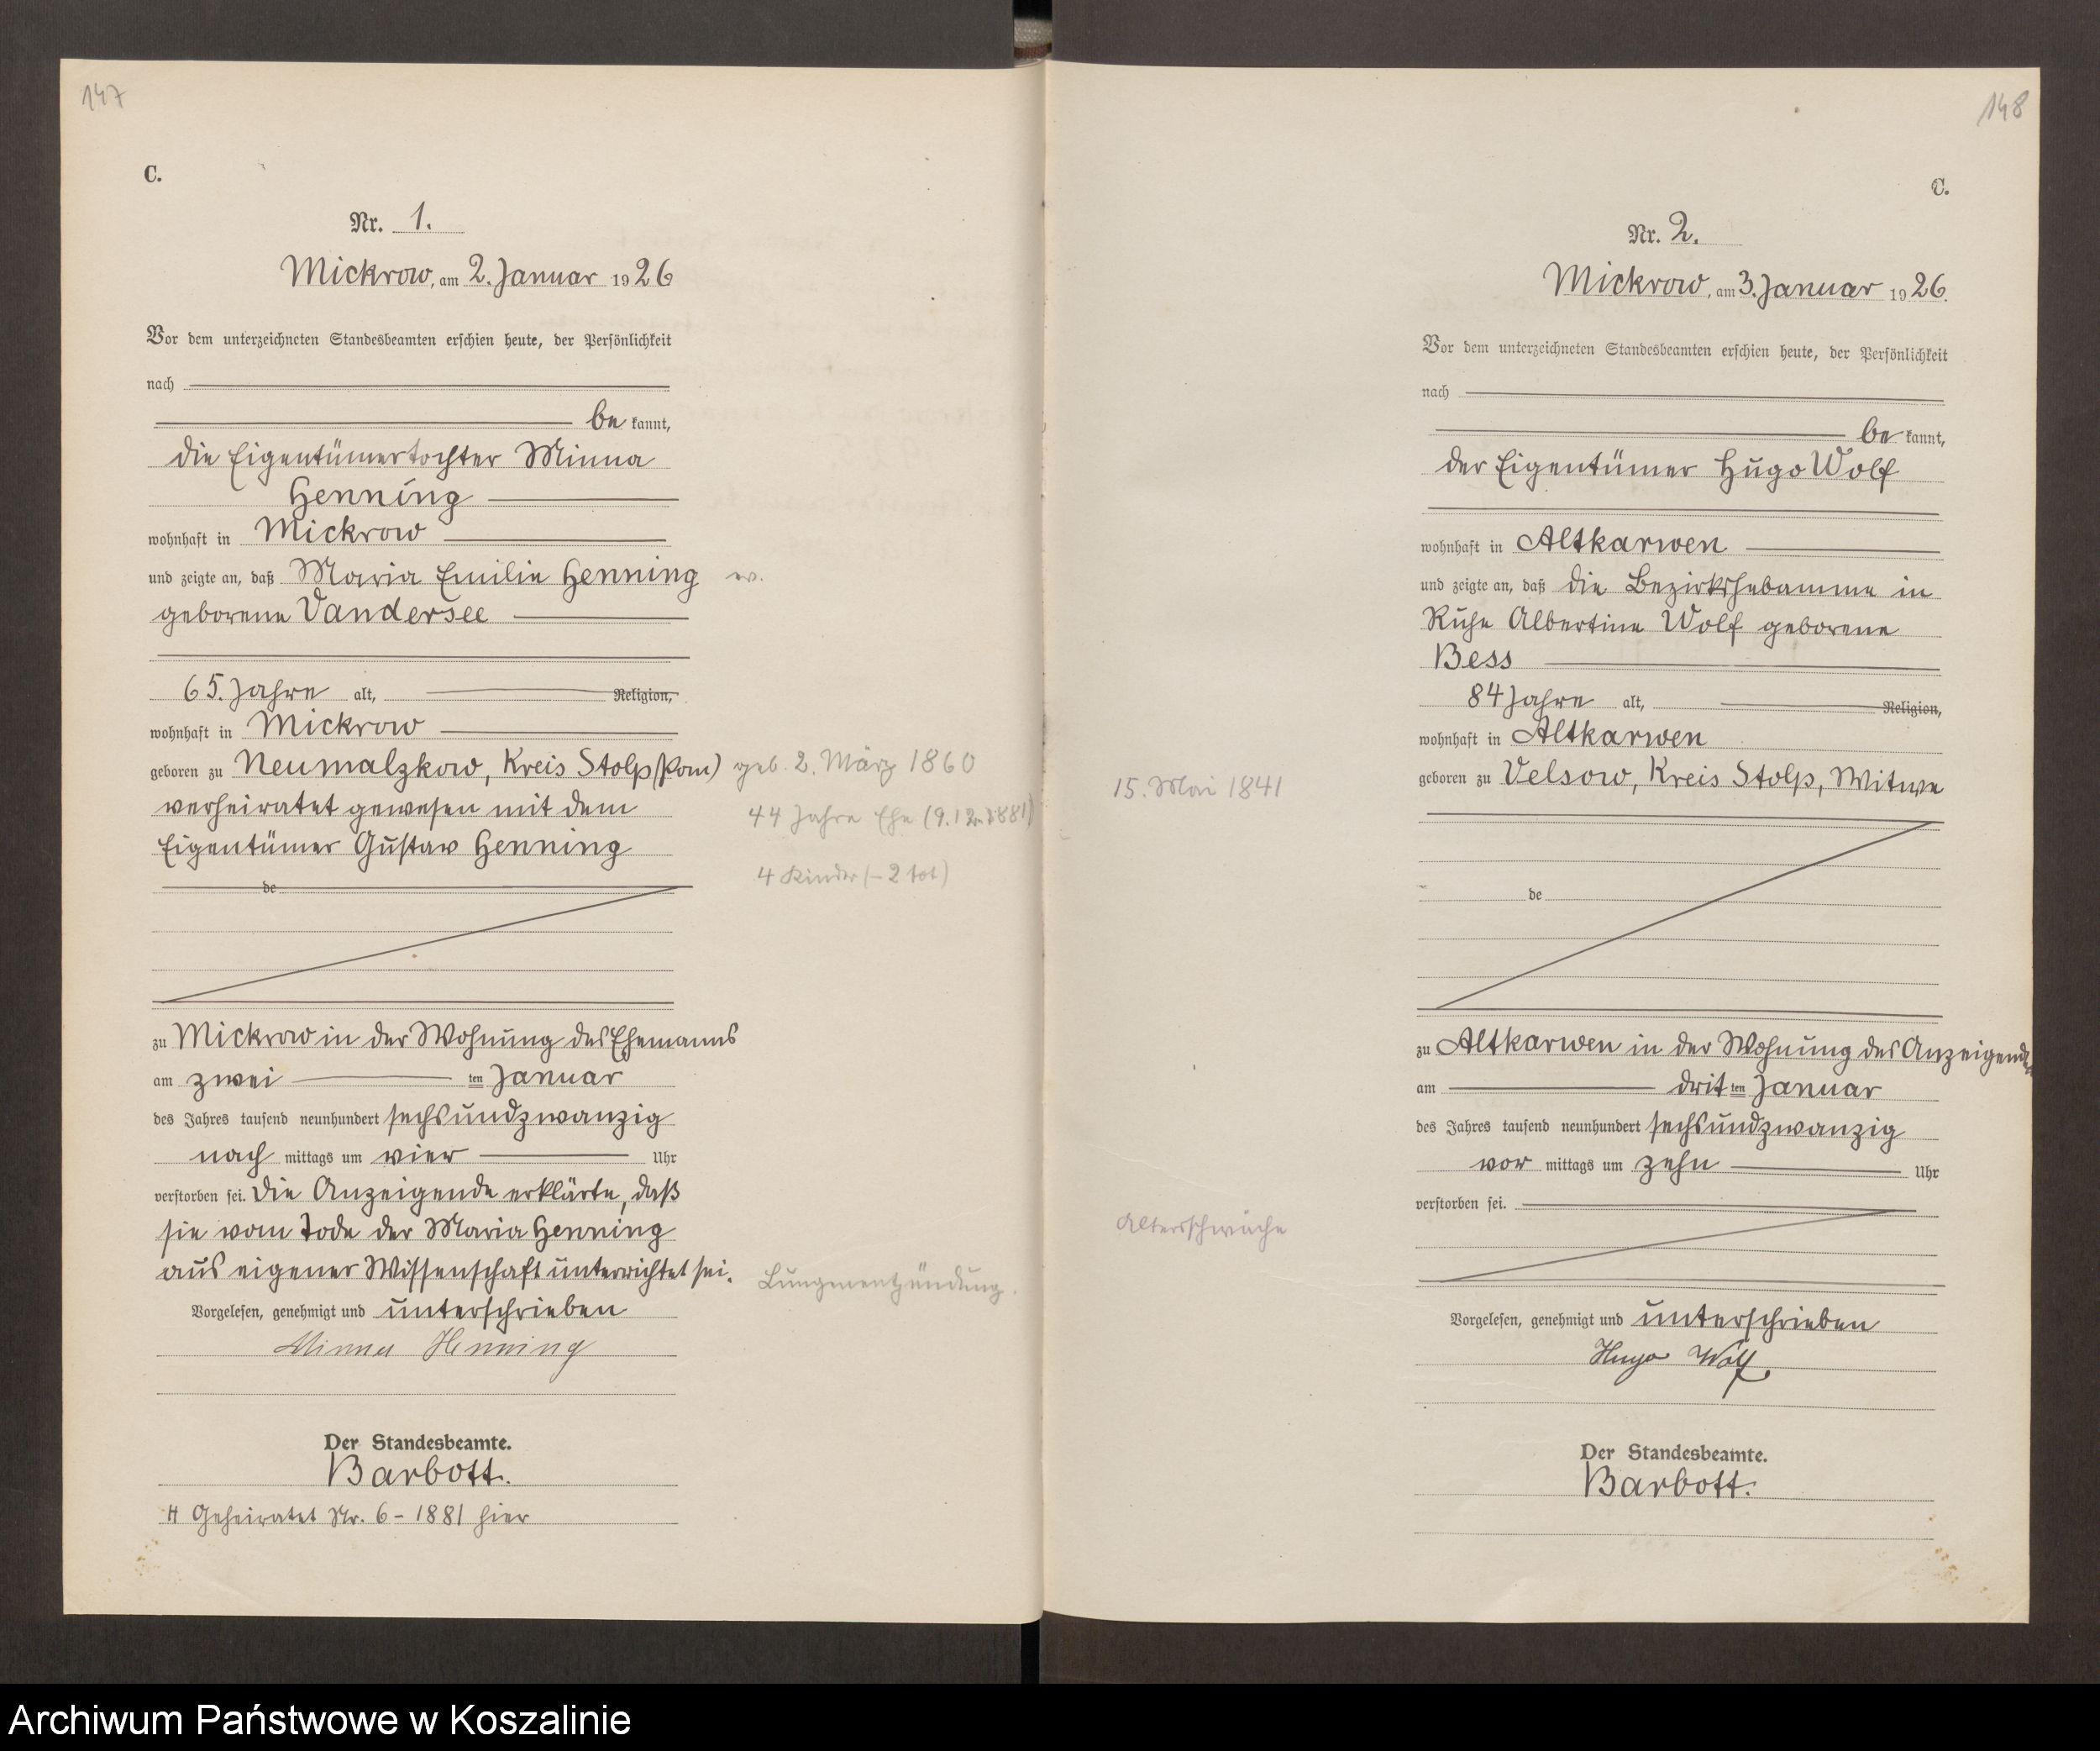 147
C.
Nr. 1.
Mickrow, am 2. Januar 1926
Vor dem unterzeichneten Standesbeamten erschien heute, der Persönlichkeit
nach
be kannt,
die Eigentümertochter Minna
Henning
wohnhaft in Mickrow
und zeigte an, daß Maria Emilie Henning ev.
geborene Vandersee
65. Jahre alt, Religion,
wohnhaft in Mickrow
geboren zu Neumalzkow, Kreis Stolp (Pom) geb. 2. März 1860
verheiratet gewesen mit dem 44 Jahre Ehe (9.12.1881)
Eigentümer Gustav Henning
4 Kinder (- 2 tot)
de
zu Mickrow in der Wohnung des Ehemanns
am zwei ten Januar
des Jahres tausend neunhundert sechsundzwanzig
nach mittags um vier Uhr
verstorben sei. Die Anzeigende erklärte, daß
sie vom Tode der Maria Henning
aus eigener Wissenschaft unterrichtet sei. Lungenentzündung.
Vorgelesen, genehmigt und unterschrieben
Minna Henning
Der Standesbeamte.
Barbott.
H Geheiratet Nr. 6 - 1881 hier
148
C.
Nr. 2.
Mickrow, am 3. Januar 1926.
Vor dem unterzeichneten Standesbeamten erschien heute, der Persönlichkeit
nach
be kannt,
der Eigentümer Hugo Wolf
wohnhaft in Altkarwen
und zeigte an, daß die Bezirkshebamme in
Ruhe Albertine Wolf geborene
Bess
84 Jahre alt, Religion,
wohnhaft in Altkarwen
15. Mai 1841 geboren zu Velsow, Kreis Stolp, Witwe
de
zu Altkarwen in der Wohnung des Anzeigenden
am drit ten Januar
des Jahres tausend neunhundert sechsundzwanzig
vor mittags um zehn Uhr
verstorben sei.
Altersschwäche
Vorgelesen, genehmigt und unterschrieben
Hugo Wolf.
Der Standesbeamte.
Barbott.
Archiwum Państwowe w Koszalinie